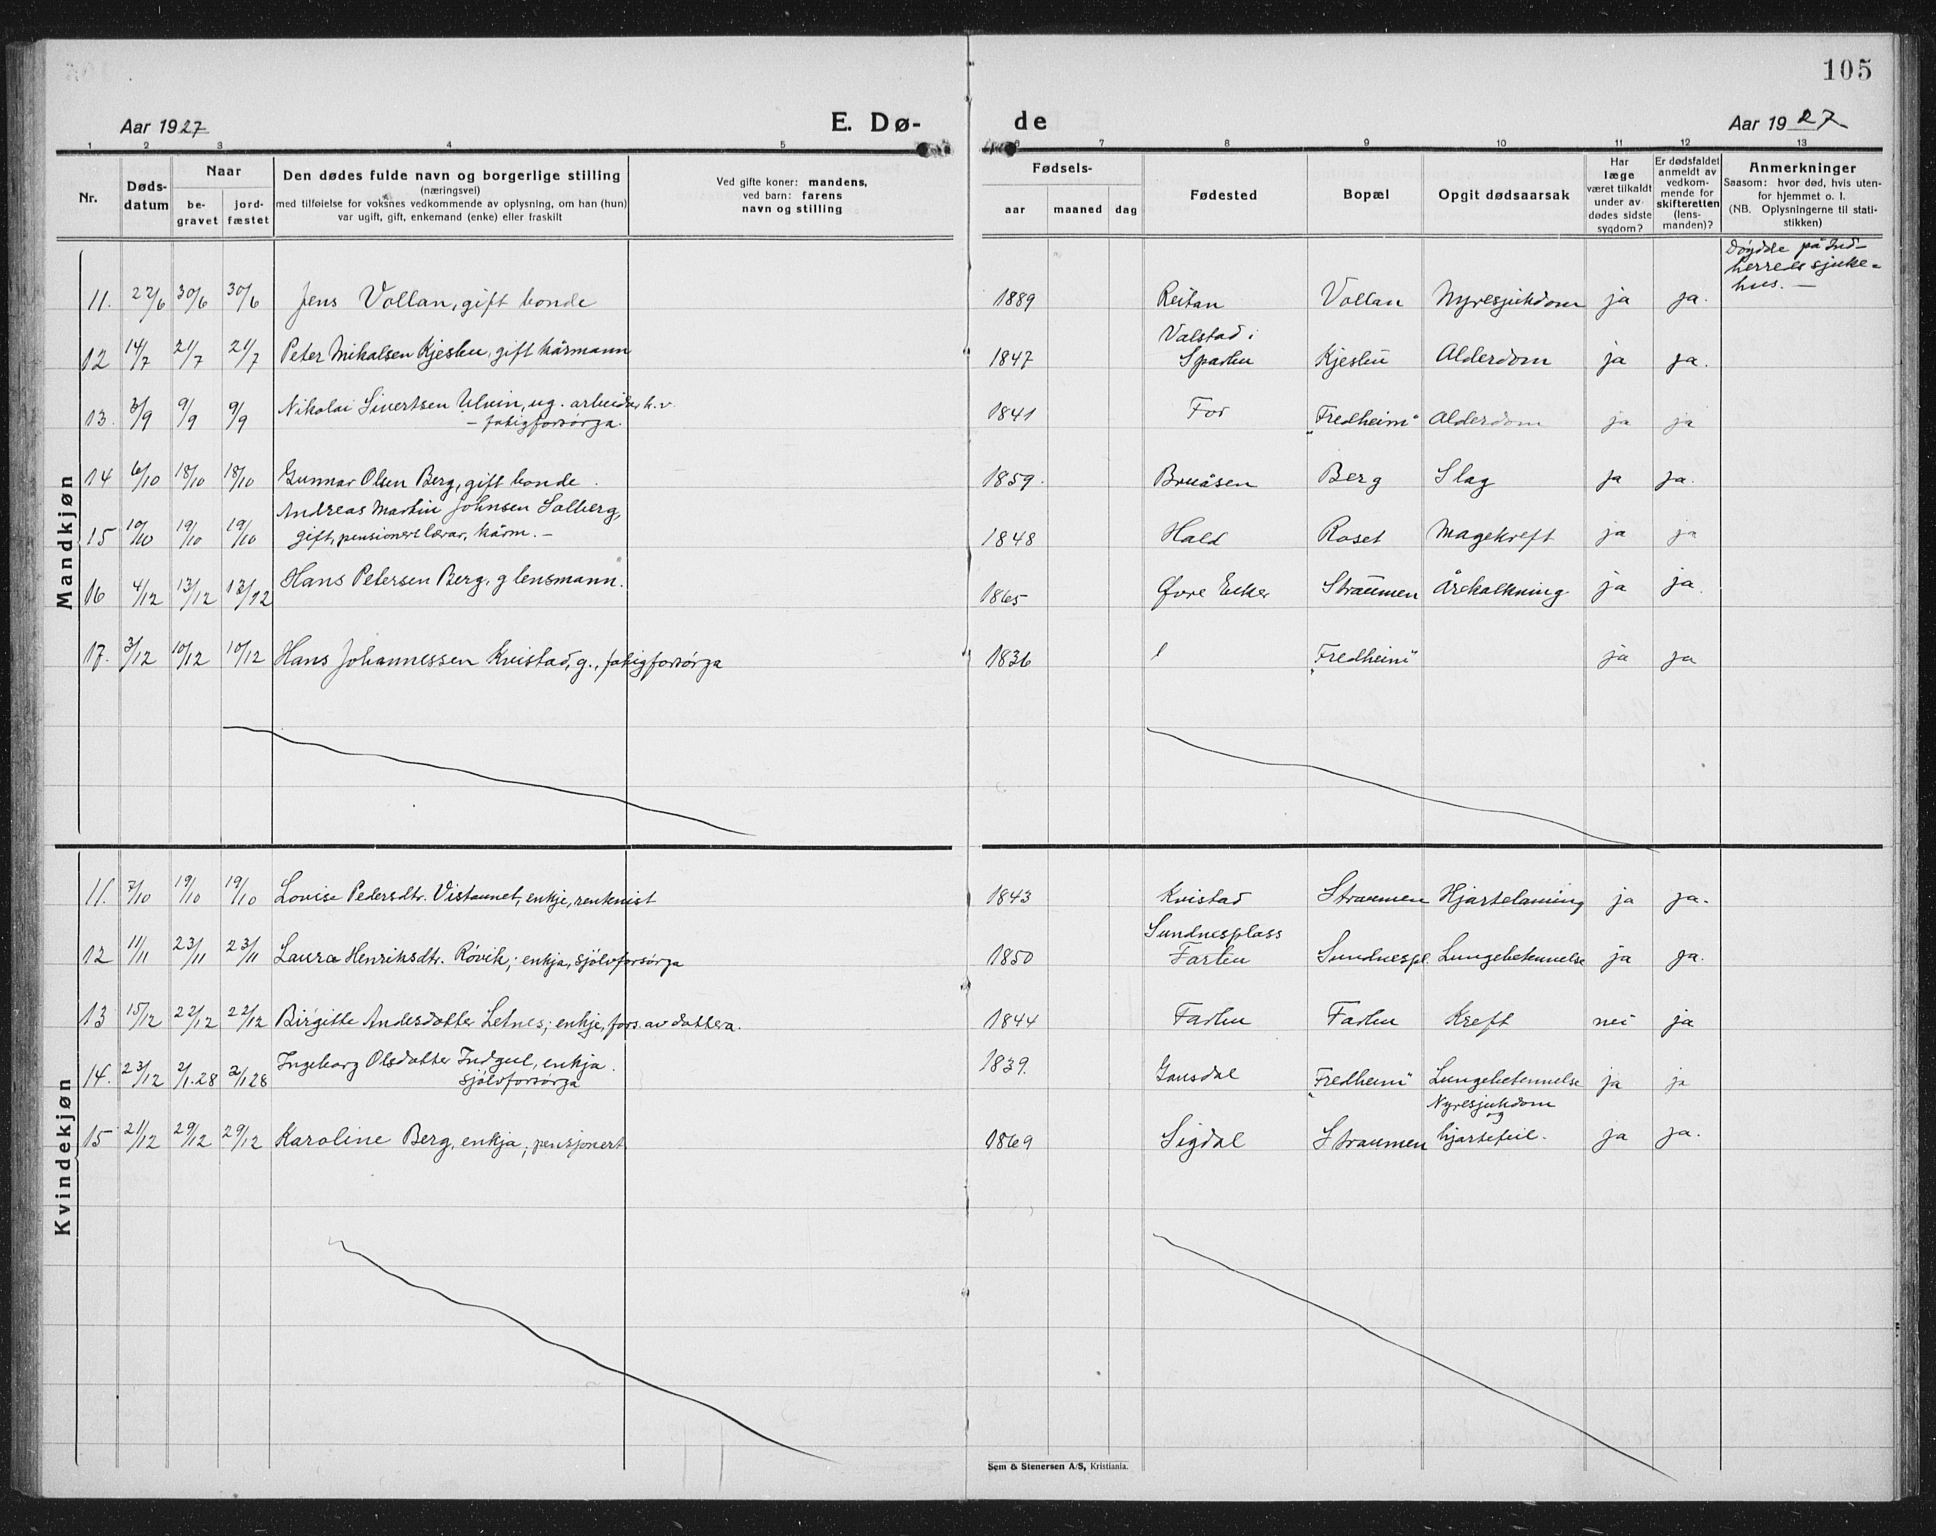 105
Aar 1927
E. Dø-
de
Aar 1927
1 2 3 4 5 6 7 8 9 10 11 12 13
Nr.
Døds-
datum
Naar
be-
gravet
jord-
fæstet
Den dødes fulde navn og borgerlige stilling
(næringsvei)
med tilføielse for voksnes vedkommende av oplysning, om han (hun)
var ugift, gift, enkemand (enke) eller fraskilt
Ved gifte koner: mandens,
ved barn: farens
navn og stilling
Fødsels-
aar maaned dag
Fødested
Bopæl
Opgit dødsaarsak
Har
læge
været tilkaldt
under av-
dødes sidste
sygdom?
Er dødsfaldet
anmeldt av
vedkom-
mende for
skifteretten
(lens-
manden)?
Anmerkninger
Saasom: hvor død, hvis uten-
for hjemmet o. l.
(NB. Oplysningerne til stati-
stikken)
Mandkjøn
Døydde på Ind-
herreds sjuke-
hus. —
11. 22/6 30/6 30/6 Jens Vollan, gift bonde 1889 Reitan Vollan Nyresjukdom ja ja.
Valstad i
12 14/7 21/7 21/7 Peter Mikalsen Kjeslu, gift kårmann 1847 Sparbu Kjeslu Alderdom ja ja.
13. 3/9 9/9 9/9 Nikolai Sivertsen Ulvin, ug. arbeidar h.v. 1841 For "Fredheim" Alderdom ja ja
— fatigforsørga.
14 6/10 18/10 18/10 Gunnar Olsen Berg, gift bonde. 1859. Bruåsen Berg Slag ja ja.
Andreas Martin Johnsen Salberg,
15 10/10 19/10 19/10 gift, pensionert lærar, kårm. — 1848 Hald Roset Magekreft ja ja
16 4/12 13/12 13/12 Hans Petersen Berg, g lensmann. 1865 Øvre Eiker Straumen Årekalkning ja ja.
17. 3/12 10/12 10/12 Hans Johannessen Kvistad, g., fatigforsørga 1836 "Fredheim" ja ja
Kvindekjøn
11. 7/10 19/10 19/10 Lovise Pedersdtr. Vistaunet, enkje, rentenist 1843 Kvistad Straumen Hjartelaming ja ja.
Sundnesplass
12 11/11 23/11 23/11 Laura Henriksdtr. Røvik; enkja, sjølvforsørga 1850 Farbu Sundnespl. Lungebetennelse ja ja.
13 15/12 22/12 22/12 Birgitte Andersdatter Letnes; enkje, fors. av dottera. 1844 Farbu Farbu Kreft nei ja
14. 23/12 2/1.28 2/1 28 Ingeborg Olsdatter Indgul, enkja. 1839. Gausdal "Fredheim" Lungebetennelse ja ja
sjølvforsørga
Nyresjukdom
og
15 21/12 29/12 29/12 Karoline Berg, enkja; pensjonert 1869 Sigdal Straumen hjartefeil. ja ja.
Sem & Stenersen A/S, Kristiania.